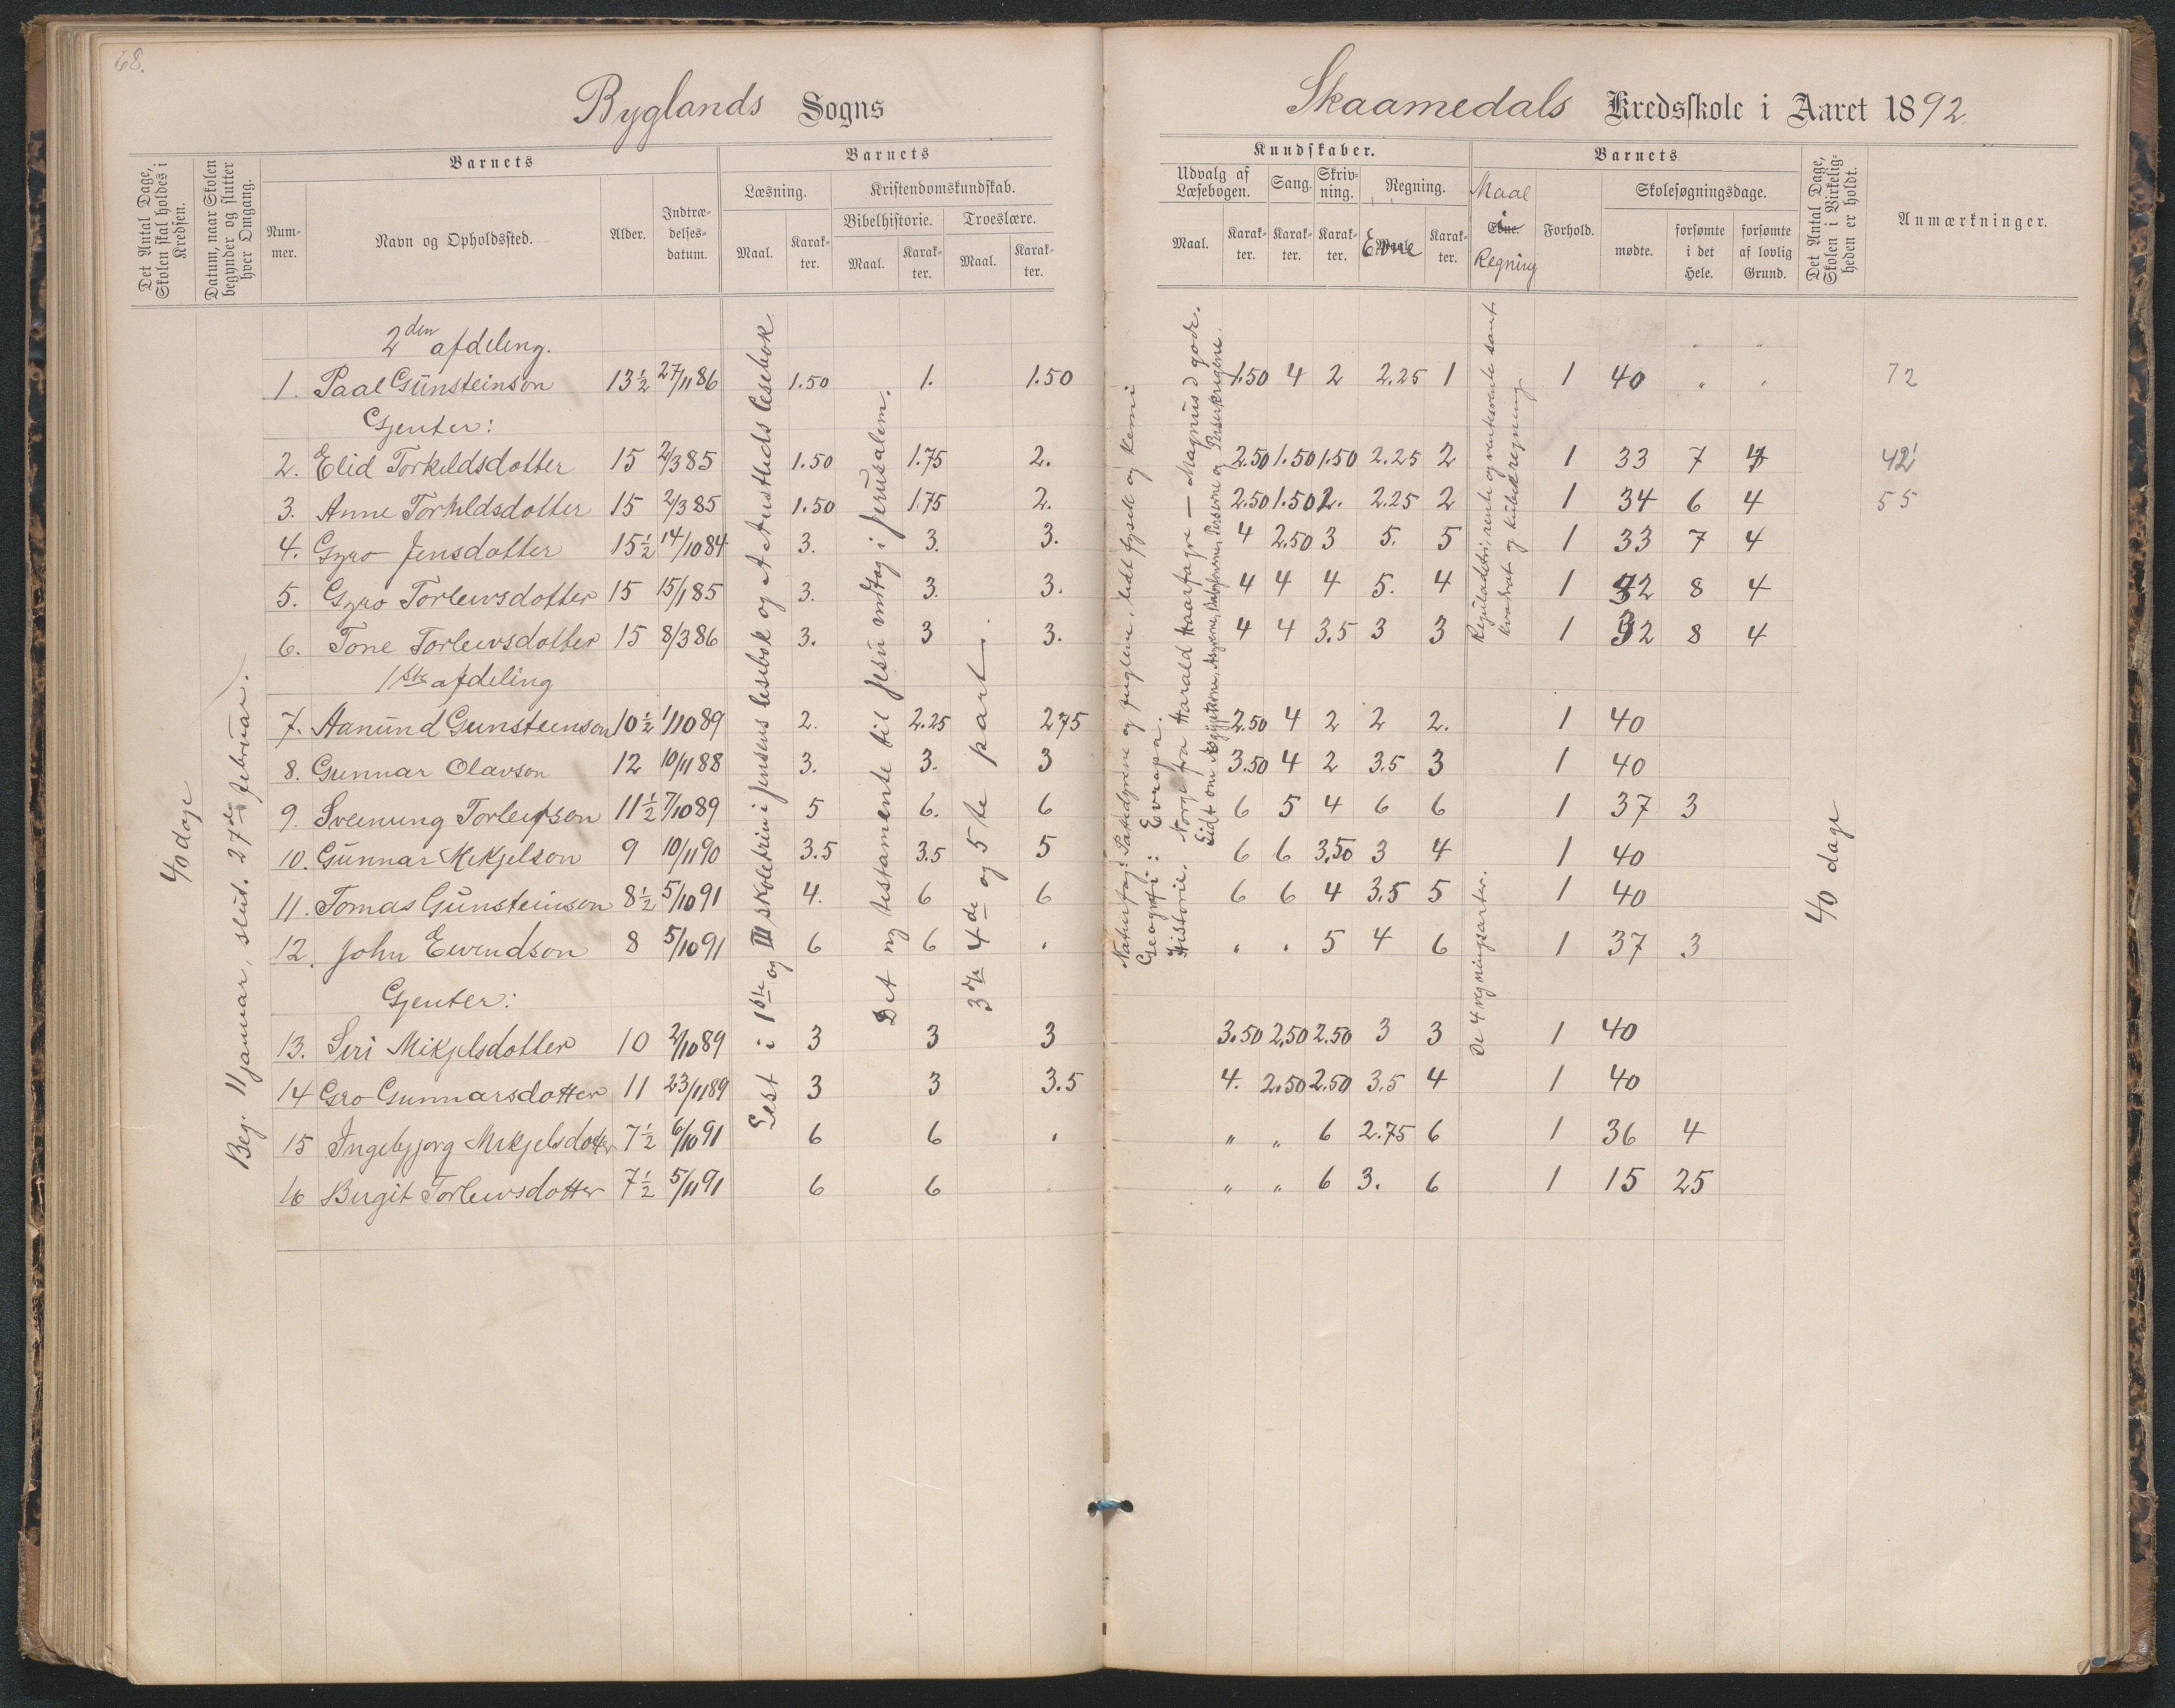 68.
Byglands Sogns
Skaamedals Kredsskole i Aaret 1892.
Det Antal Dage, Skolen skal holdes i Kredsen.
Datum, naar Skolen begynder og slutter hver Omgang.
Barnets
Nummer.
Navn og Opholdssted.
Alder.
Indtrædelsesdatum.
Barnets
Læsning.
Maal.
Karakter.
Kristendomskundskab.
Bibelhistorie.
Maal.
Karakter.
Troeslære.
Maal.
Karakter.
Kundskaber.
Udvalg af Læsebogen.
Maal.
Karakter.
Sang.
Karakter.
Skrivning.
Karakter.
Regning.
Evne
Karakter.
Barnets
Maal i Regning
Evne.
Forhold.
Skolesøgningsdage.
mødte.
forsømte i det Hele.
forsømte af lovlig Grund.
Det Antal Dage, Skolen i Virkeligheden er holdt.
Anmærkninger.
40 dage
Beg. 11 januar, slut. 27de februar.
2den afdeling.
1. Paal Gunsteinson 13½ 27/11 86 1.50 1. 1.50 1.50 4 2 2.25 1 1 40 " " 72
Gjenter:
2. Elid Torkildsdotter 15 2/3 85 1.50 1.75 2. 2.50 1.50 1.50 2.25 2 1 33 7 4 42
3. Anne Torkildsdotter 15 2/3 85 1.50 1.75 2. 2.50 1.50 2. 2.25 2 1 34 6 4 55
4. Gyro Jensdotter 15½ 14/10 84 3. 3. 3. 4 2.50 3 5. 5 1 33 7 4
5. Gyro Torleivsdotter 15 15/1 85 3. 3. 3. 4 4 4 5. 4 1 32 8 4
6. Tone Torleivsdotter 15 8/3 86 3. 3 3. 4 4 3.5 3 3 1 32 8 4
1ste afdeling
7. Aanund Gunsteinson 10½ 1/10 89 2. 2.25 2.75 2.50 4 2 2 2. 1 40
8. Gunnar Olavson 12 10/11 88 3. 3. 3 3.50 4 2 3.5 3 1 40
9. Sveinung Torleifson 11½ 7/10 89 5 6. 6 6 5 4 6 6 1 37 3
10. Gunnar Mikjelson 9 10/11 90 3.5 3.5 5 6 6 3.50 3 4 1 40
11. Tomas Gunsteinson 8½ 5/10 91 4. 6 6 6 6 4 3.5 5 1 40
12. John Eivindson 8 5/10 91 6 6 . " " 5 4 6 1 37 3
Gjenter:
13. Siri Mikjelsdotter 10 2/10 89 3 3 3 3.50 2.50 2.50 3 3 1 40
14 Gro Gunnarsdotter 11 23/11 89 3 3 3.5 4. 2.50 2.50 3.5 4 1 40
15 Ingebjorg Mikjelsdotter 7½ 6/10 91 6 6 . " " 6 2.75 6 1 36 4
16 Birgit Torleivsdotter 7½ 5/11 91 6 6 . " " 6 3. 6 1 15 25
Lest i 1ste og III skoletrin i Jensens lesebok og A Austlids lesebok
Det ny testamente til Jesu indtog i Jerusalem.
3dje 4de og 5te part.
Naturfag: Patedyrene og fuglene, lidt fysik og kemi
Geografi: Evropa.
Historie. Norge fra Harald Haarfagre — Magnus d gode.
Lidt om Ægypterne, Assyrerne, Perserne og Perserkrigene.
Reguladetri, rente og rentesrente samt kvadrat og kubikregning
De 4 regningsarter.
40 dage